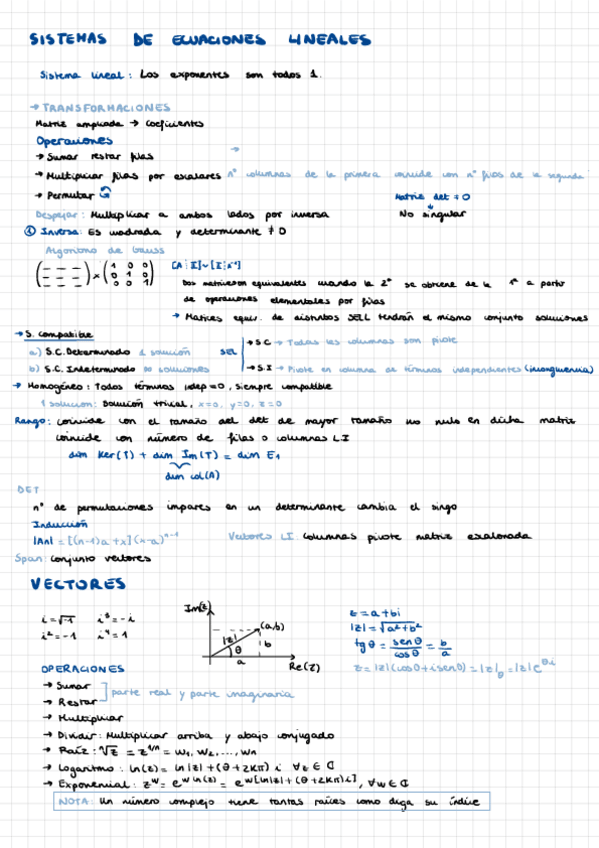 SISTEMAS DE ECUACIONES LINEALES
Sistema lineal: Los exponentes son todos 1.
→ TRANSFORMACIONES
Matriz ampliada → Coeficientes
Operaciones
→ Sumar restar filas
→ Multiplicar filas por escalares nº columnas de la primera coincide con nº filas de la segunda
→ Permutar
Matriz det ≠ 0
Despejar: Multiplicar a ambos lados por inversa
No singular
① Inversa: Es cuadrada y determinante ≠ 0
Algoritmo de Gauss
(– – –) × (1 0 0)
(– – –) (0 1 0)
(– – –) (0 0 1)
[A | I] ~ [I | x⁻¹]
Dos matrices son equivalentes cuando la 2ª se obtiene de la 1ª a partir
de operaciones elementales por filas
→ Matrices equiv. de distintos SELL tendrán el mismo conjunto soluciones
→ S. compatible
a) S.C. Determinado 1 solución
b) S.C. Indeterminado ∞ soluciones
SEL
→ S.C → Todas las columnas son pivote
→ S.I → Pivote en columna de términos independientes (incongruencia)
→ Homogéneo: Todos términos indep = 0, siempre compatible
1 solucion: Solución trivial, x=0, y=0, z=0
Rango: coincide con el tamaño del det de mayor tamaño no nulo en dicha matriz
coincide con número de filas o columnas L.I
dim Ker(T) + dim Im(T) = dim E₁
dim col(A)
DET
nº de permutaciones impares en un determinante cambia el singo
Inducción
|An| = [(n-1)a + x](x-a)ⁿ⁻¹
Vectores LI: Columnas pivote matriz escalonada
Span: Conjunto vectores
VECTORES
i = √-1 i³ = -i
i² = -1 i⁴ = 1
Im(z)
(a,b)
|z|
θ
b
a
Re(z)
z = a+bi
|z| = √a²+b²
tg θ = sen θ / cos θ = b / a
z = |z|(cos θ + i sen θ) = |z|_θ = |z|e^θi
OPERACIONES
→ Sumar
→ Restar
parte real y parte imaginaria
→ Multiplicar
→ Dividir: Multiplicar arriba y abajo conjugado
→ Raíz: ⁿ√z = z^1/n = w₁, w₂, ..., wn
→ Logaritmo: ln(z) = ln|z| + (θ + 2Kπ) i ∀z ∈ ℂ
→ Exponencial: z^w = e^w ln(z) = e^w[ln|z| + (θ + 2Kπ)i], ∀w ∈ ℂ
NOTA: Un número complejo tiene tantas raíces como diga su índice